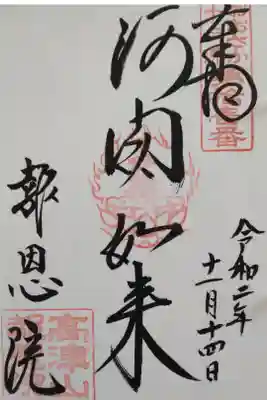 奉拝
令和二年
十一月十四日
阿閦如来
報恩院
高津山
報恩院